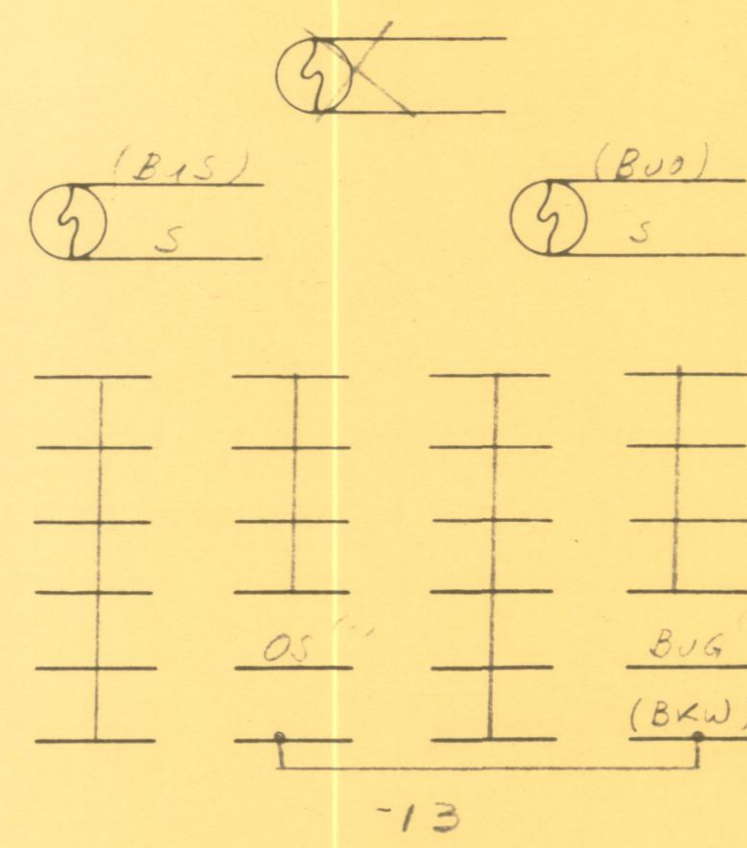 (B1S) (BUO)
S S
OS BUG
(BKW)
-13